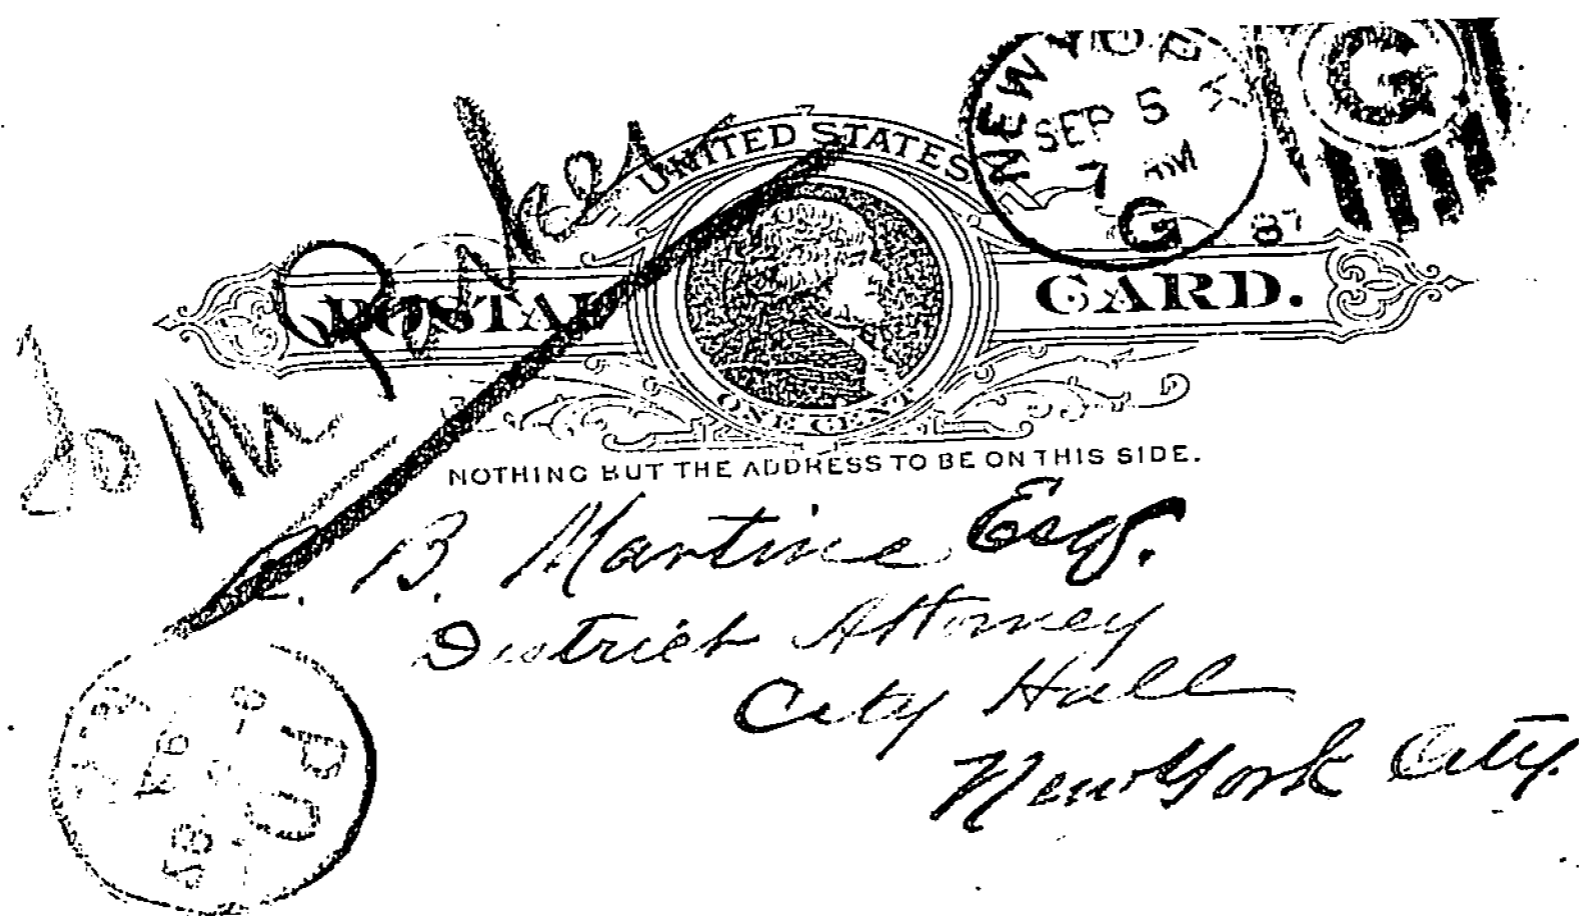 NEW YORK
SEP 5
7 AM
G
87
G
UNITED STATES
POSTAL CARD.
ONE CENT
NOTHING BUT THE ADDRESS TO BE ON THIS SIDE.
B. Martine Esq.
District Attorney
City Hall
New York City.